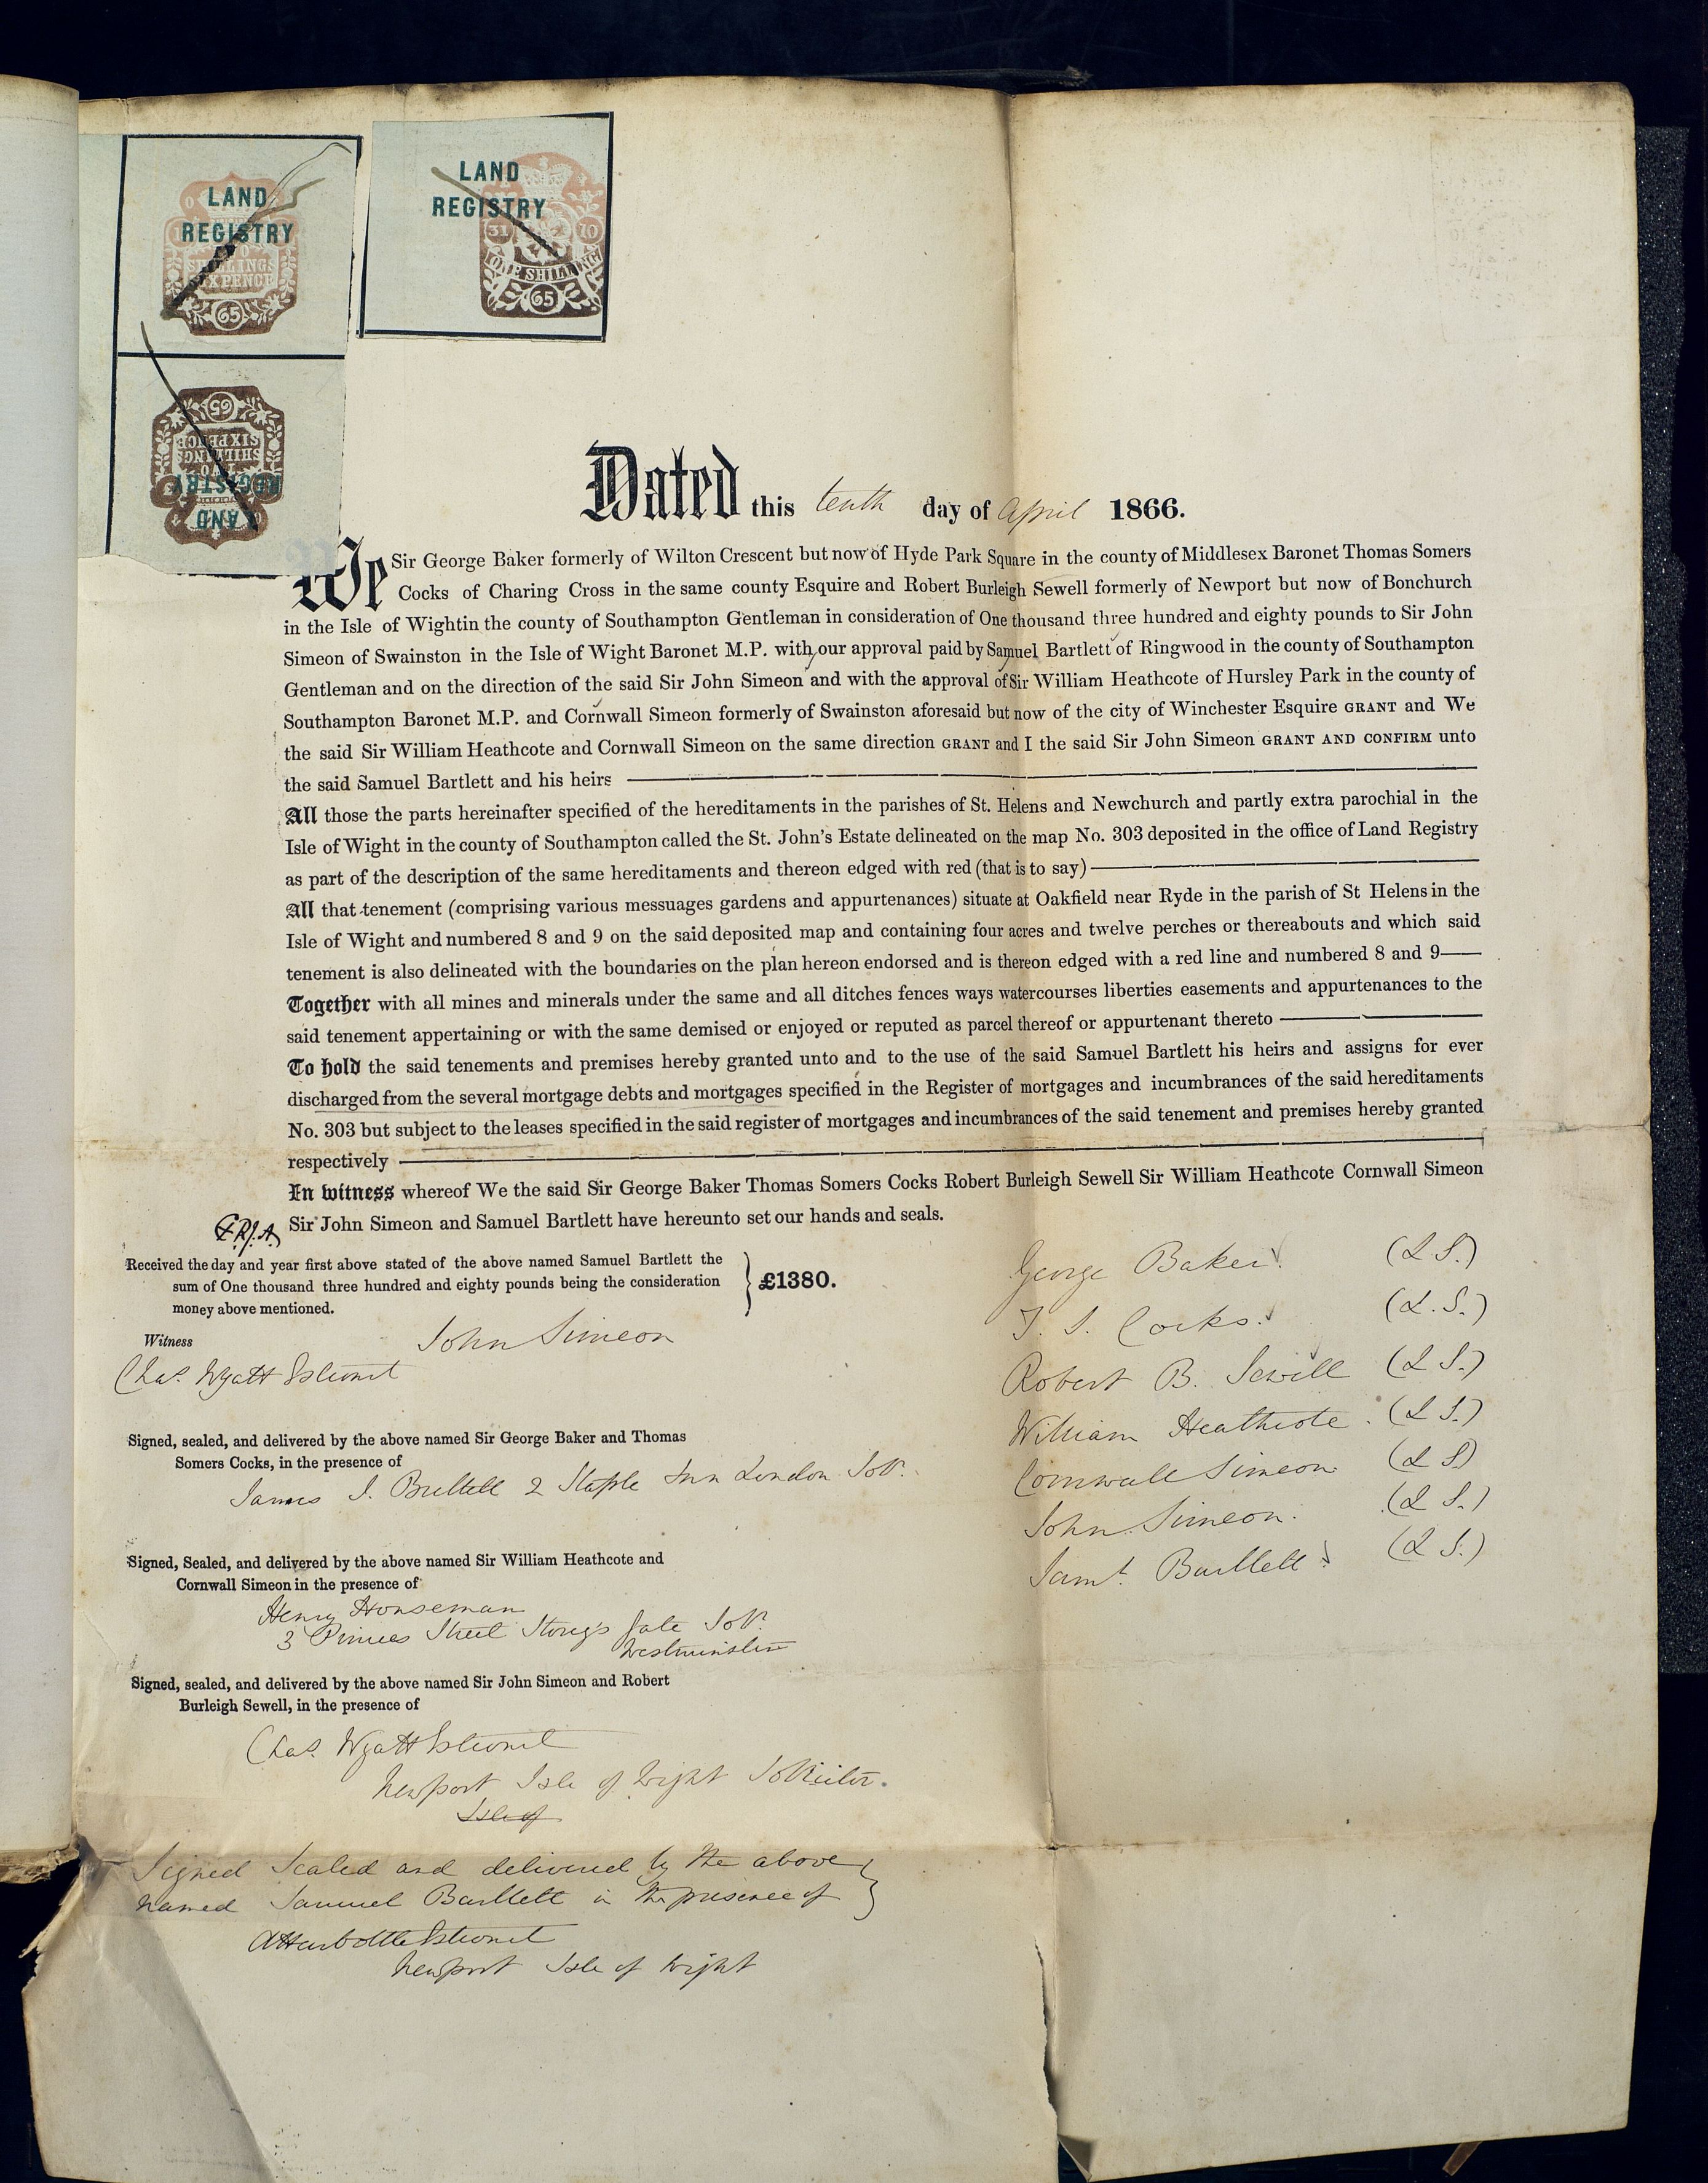 LAND
REGISTRY
TWO
SHILLINGS
SIXPENCE
65
LAND
REGISTRY
31 10
ONE SHILLING
65
LAND
REGISTRY
TWO
SHILLINGS
SIXPENCE
65
Dated this tenth day of April 1866.
We Sir George Baker formerly of Wilton Crescent but now of Hyde Park Square in the county of Middlesex Baronet Thomas Somers
Cocks of Charing Cross in the same county Esquire and Robert Burleigh Sewell formerly of Newport but now of Bonchurch
in the Isle of Wightin the county of Southampton Gentleman in consideration of One thousand three hundred and eighty pounds to Sir John
Simeon of Swainston in the Isle of Wight Baronet M.P. with our approval paid by Samuel Bartlett of Ringwood in the county of Southampton
Gentleman and on the direction of the said Sir John Simeon and with the approval of Sir William Heathcote of Hursley Park in the county of
Southampton Baronet M.P. and Cornwall Simeon formerly of Swainston aforesaid but now of the city of Winchester Esquire GRANT and We
the said Sir William Heathcote and Cornwall Simeon on the same direction GRANT and I the said Sir John Simeon GRANT AND CONFIRM unto
the said Samuel Bartlett and his heirs
All those the parts hereinafter specified of the hereditaments in the parishes of St. Helens and Newchurch and partly extra parochial in the
Isle of Wight in the county of Southampton called the St. John's Estate delineated on the map No. 303 deposited in the office of Land Registry
as part of the description of the same hereditaments and thereon edged with red (that is to say)
All that tenement (comprising various messuages gardens and appurtenances) situate at Oakfield near Ryde in the parish of St Helens in the
Isle of Wight and numbered 8 and 9 on the said deposited map and containing four acres and twelve perches or thereabouts and which said
tenement is also delineated with the boundaries on the plan hereon endorsed and is thereon edged with a red line and numbered 8 and 9
Together with all mines and minerals under the same and all ditches fences ways watercourses liberties easements and appurtenances to the
said tenement appertaining or with the same demised or enjoyed or reputed as parcel thereof or appurtenant thereto
To hold the said tenements and premises hereby granted unto and to the use of the said Samuel Bartlett his heirs and assigns for ever
discharged from the several mortgage debts and mortgages specified in the Register of mortgages and incumbrances of the said hereditaments
No. 303 but subject to the leases specified in the said register of mortgages and incumbrances of the said tenement and premises hereby granted
respectively
In witness whereof We the said Sir George Baker Thomas Somers Cocks Robert Burleigh Sewell Sir William Heathcote Cornwall Simeon
Sir John Simeon and Samuel Bartlett have hereunto set our hands and seals.
Received the day and year first above stated of the above named Samuel Bartlett the
sum of One thousand three hundred and eighty pounds being the consideration £1380.
money above mentioned.
Witness John Simeon
Chas. Wyatt Estcourt
George Baker (L S.)
T. S. Cocks. (L. S.)
Robert B. Sewell (L S.)
William Heathcote. (L S.)
Cornwall Simeon (L S)
John Simeon. (L S.)
Saml. Bartlett (L S.)
Signed, sealed, and delivered by the above named Sir George Baker and Thomas
Somers Cocks, in the presence of
James 2 Staple Inn London Solr.
Signed, Sealed, and delivered by the above named Sir William Heathcote and
Cornwall Simeon in the presence of
Henry Houseman
3 Princes Street Storeys Gate Solr.
Westminster
Signed, sealed, and delivered by the above named Sir John Simeon and Robert
Burleigh Sewell, in the presence of
Chas. Wyatt Estcourt
Newport Isle of Wight Solicitor.
Isle of
Signed Sealed and delivered by the above
named Samuel Bartlett in the presence of
Estcourt
Newport Isle of Wight